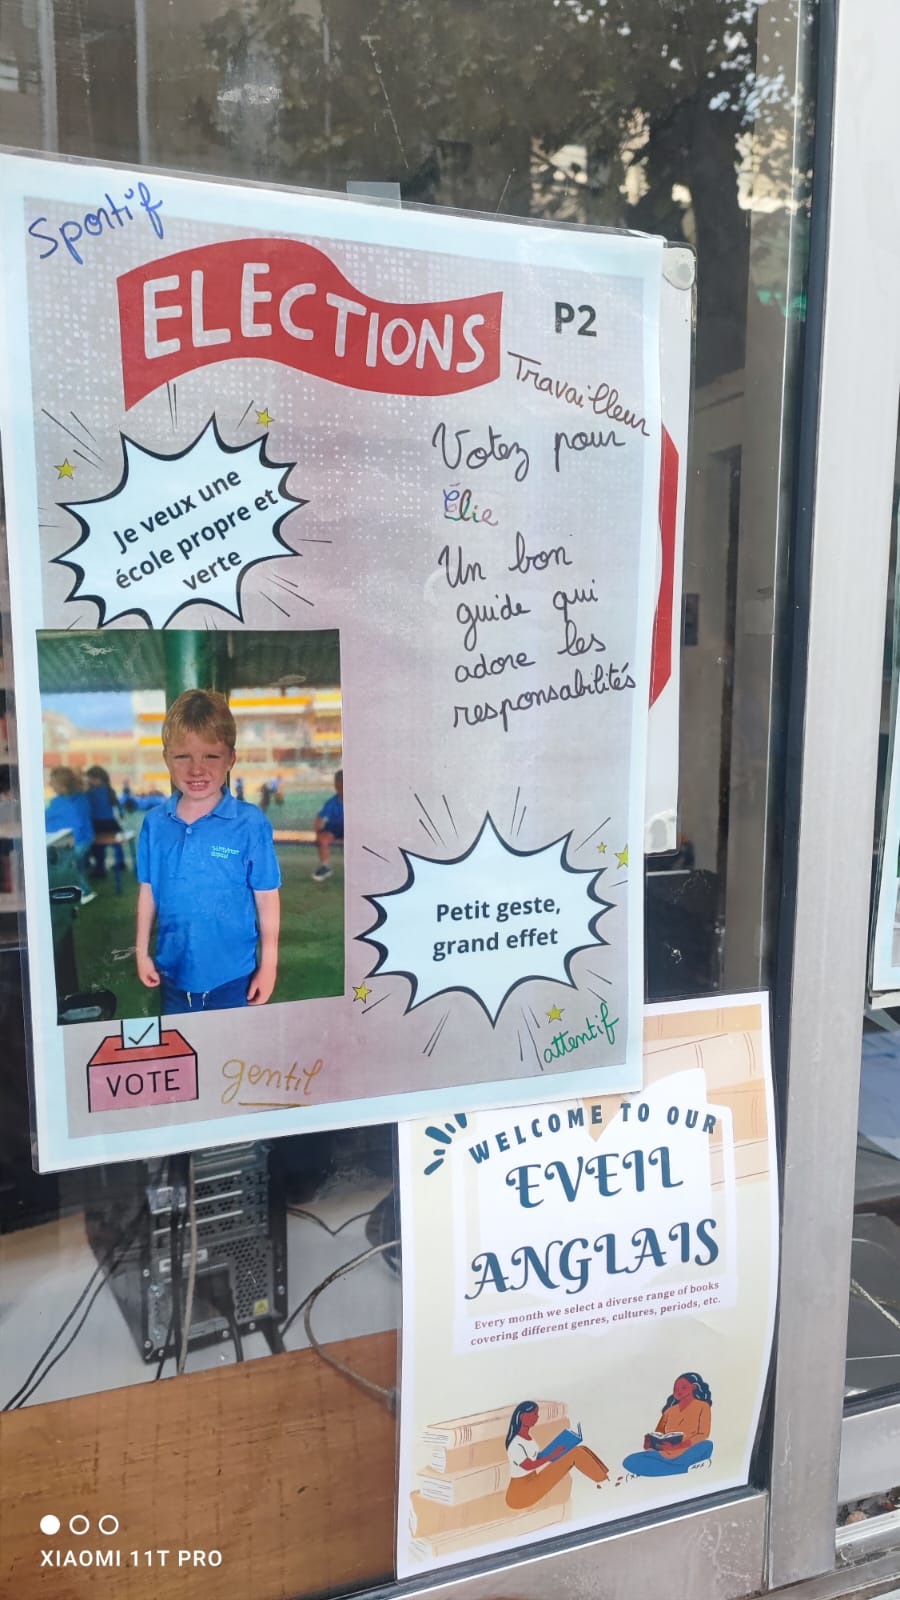 Sportif
ELECTIONS
P2
Travailleur
Je veux une
école propre et
verte
Votez pour
Élie
Un bon
guide qui
adore les
responsabilités
Petit geste,
grand effet
attentif
VOTE
gentil
WELCOME TO OUR
EVEIL
ANGLAIS
Every month we select a diverse range of books
covering different genres, cultures, periods, etc.
XIAOMI 11T PRO